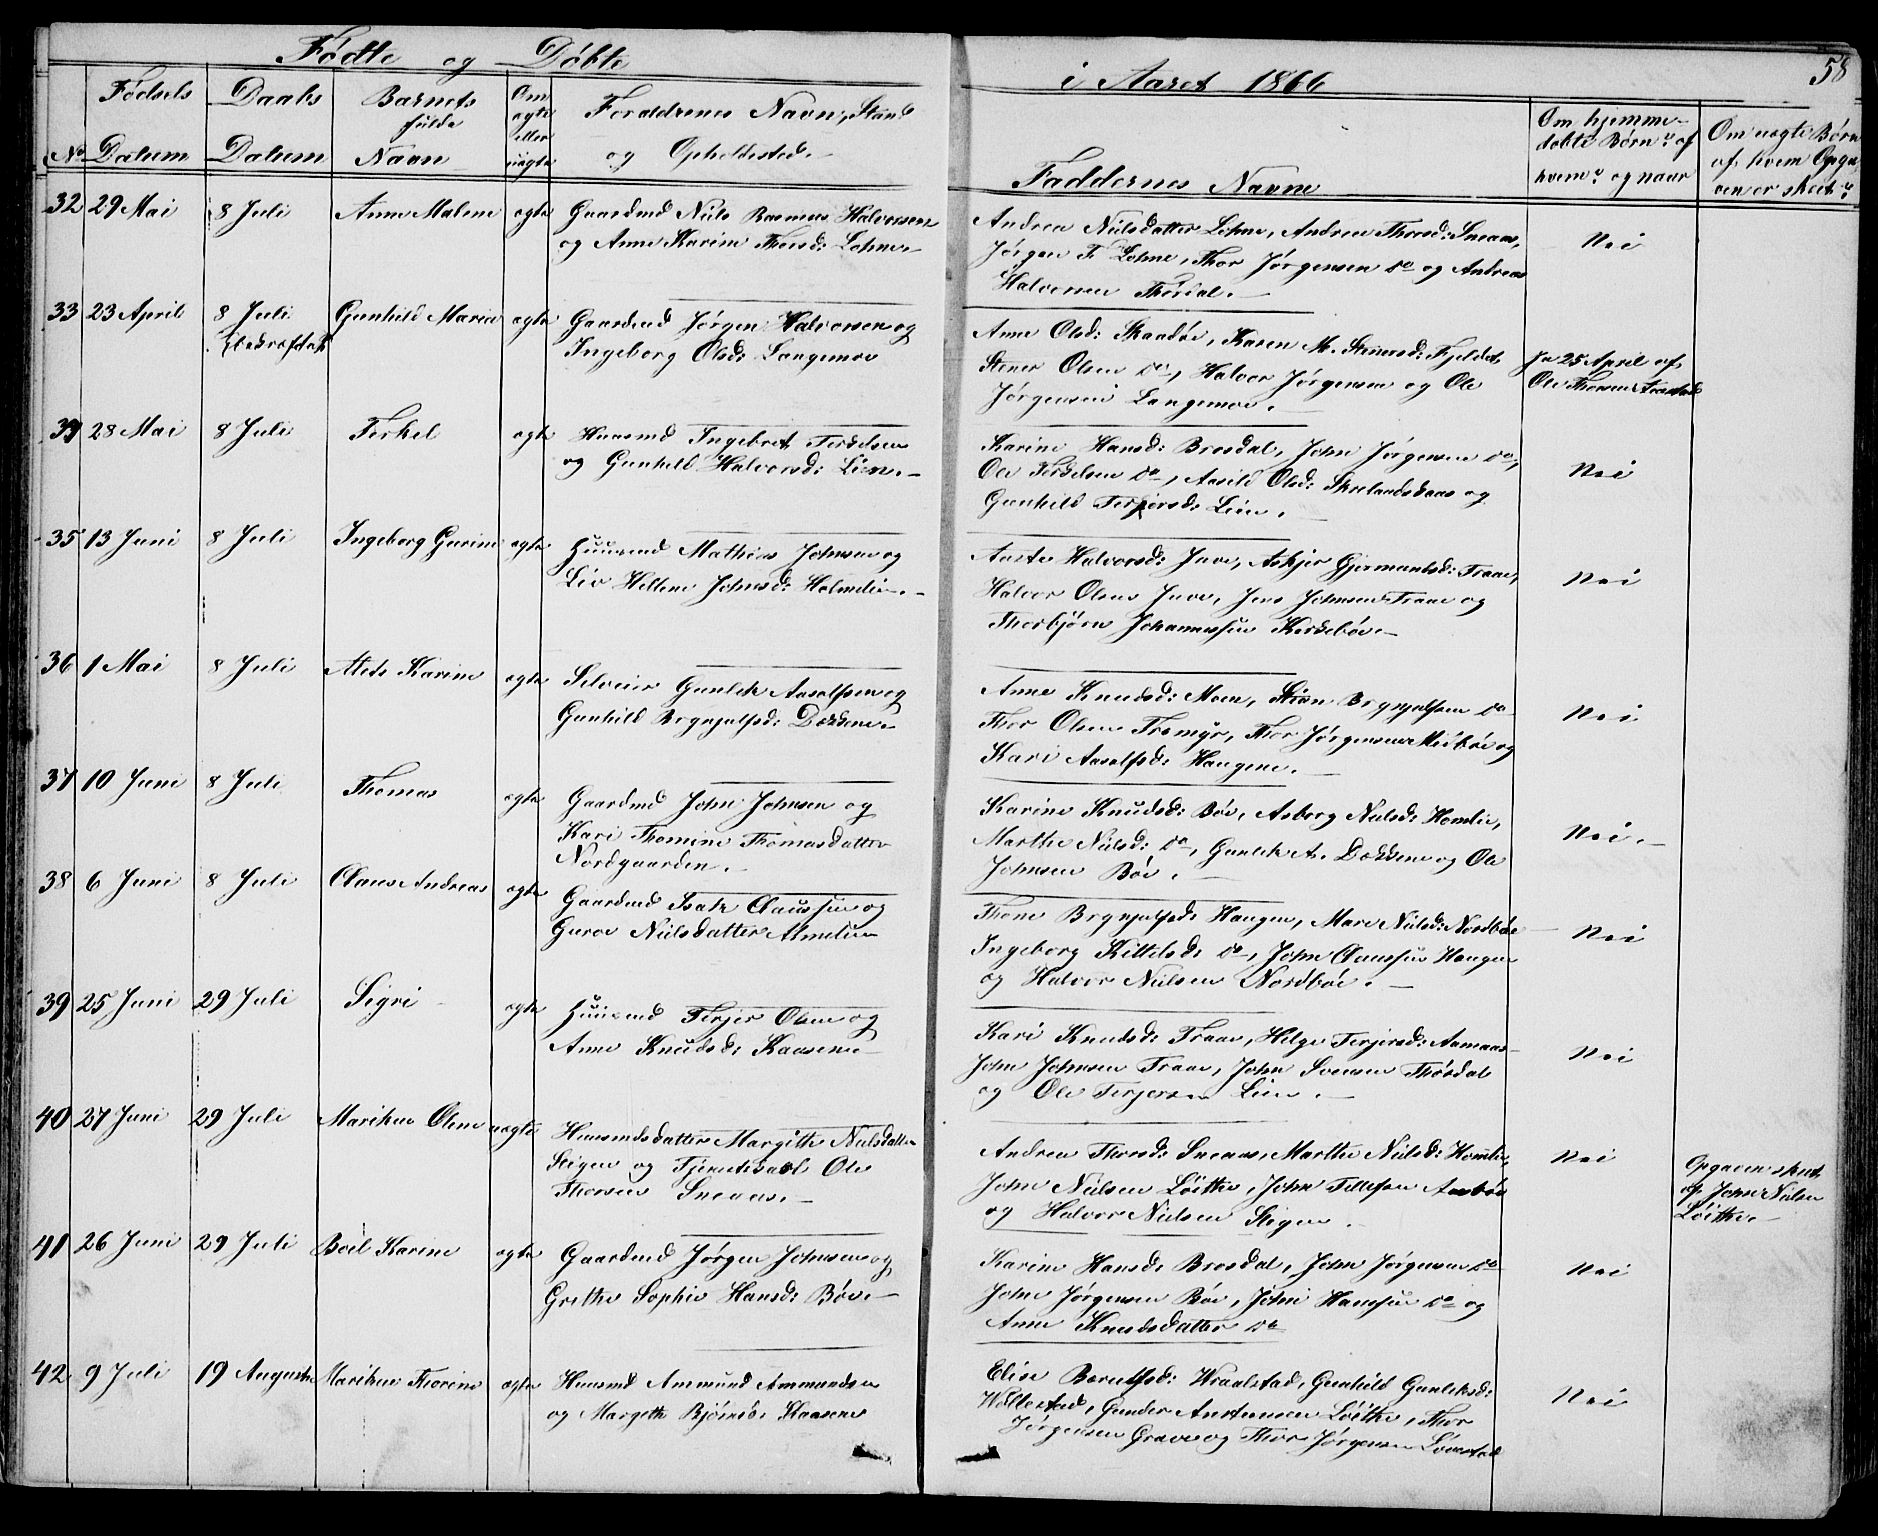 Fødte og Døbte
i Aaret 1866
58
No
Fødsels Datum
Daabs Datum
Barnets fulde Navn
Om ægte eller uægte
Forældrenes Navn, Stand og Opholdssted.
Faddernes Navne
Om hjemmedøbte Børn: af hvem? og naar
Om uægte Børn af hvem Opgaven er skeet?
32 29 Mai 8 Juli Anne Malene ægte Gaardmd Niels Rasmus Halvorsen
og Anne Karine Thorsd: Lohne.
Andrea Nielsdatter Lohne, Andrea Thorsd: Sneaas,
Jørgen F. Lohne, Thor Jørgensen do og Andreas
Halvorsen Thorsdal.
Nei
33 23 April 8 Juli Gunhild Maria ægte Gaardmd Jørgen Halvorsen og
Ingeborg Olsd: Langemoe
Anne Olsd: Skaadøe, Karen M. Stenersd: Fjeldet,
Stener Olsen do, Halvor Jørgensen og Ole
Jørgensen Langemoe.
Ja 25 April af
Ole Thorsen
34 28 Mai 8 Juli Terkel ægte Huusmd Ingebret Terkelsen
og Gunhild Halvorsd: Lien.
Karine Hansd: Brosdal, John Jørgensen do,
Ole Terkelsen do, Aasild Olsd: og
Gunhild Terjersd: Lien.
Nei
35 13 Juni 8 Juli Ingeborg Gurine ægte Huusmd Mathias Johnsen og
Liv Hellene Johnsd: Holmlien.
Aaste Halvorsd: Juve, Askjer Gjermundsd: Traae,
Halvor Olsen Juve, Jens Johnsen Traae og
Thorbjørn Johannessen Kirkebøe.
Nei
36 1 Mai 8 Juli Alete Karine ægte Selveier Gunlek Aasolfsen og
Gunhild Brynjulfsd: Dokken.
Anne Knudsd: Moen, Stian Brynjulfsen do
Thor Olsen Tromyr, Thor Jørgensen Midbøe og
Kari Aasolfsd: Haugene.
Nei
37 10 Juni 8 Juli Thomas ægte Gaardmd John Johnsen og
Kari Thomine Thomasdatter
Nordgaarden.
Karine Knudsd: Bøe, Asborg Nielsd: Homlie,
Marthe Nielsd: do, Gunlek A. Dokken og Ole
Johnsen Bøe.
Nei.
38 6 Juni 8 Juli Claus Andreas ægte Gaardmd Isak Claussen og
Guroe Nielsdatter Almelien
Thone Brynjulfsd: Haugen, Mari Nielsd: Nordbøe
Ingeborg Kittelsd: do, John Claussen Haugen
og Halvor Nielsen Nordbøe.
Nei
39 25 Juni 29 Juli Sigri ægte Huusmd Terjer Olsen og
Anne Knudsd: Kaasene
Kari Knudsd: Traae, Helge Terjersd: Aamaas
John Johnsen Traae, John Svensen Thorsdal
og Ole Terjersen Lien.
Nei
40 27 Juni 29 Juli Marthine Oline uægte Huusmdsdatter Margithe Nielsdatter
Steigen og Tjenestekarl Ole
Thorsen Sneaas.
Andrea Thorsd: Sneaas, Marthe Nielsd: Homlie,
John Nielsen Løithe, John Tellefsen
og Halvor Nielsen Steigen.
Nei
Opgaven skeet
af John Nielsen
Løithe.
41 26 Juni 29 Juli Boel Karine ægte Gaardmd Jørgen Johnsen og
Grethe Sophie Hansd: Bøe.
Karine Hansd: Brosdal, John Jørgensen do
John Jørgensen Bøe, John Hanssen do og
Anne Knudsdatter do
Nei
42 9 Juli 19 Auguste Marthine Thorine ægte Huusmd Ammund Ammundsen
og Margith Bjørnsd: Kaasene
Elise Berntsd: Wraalstad, Gunhild Gunleksd:
Gunder Austensen Løithe, Thor
Jørgensen Grave og Thor Jørgensen
Nei